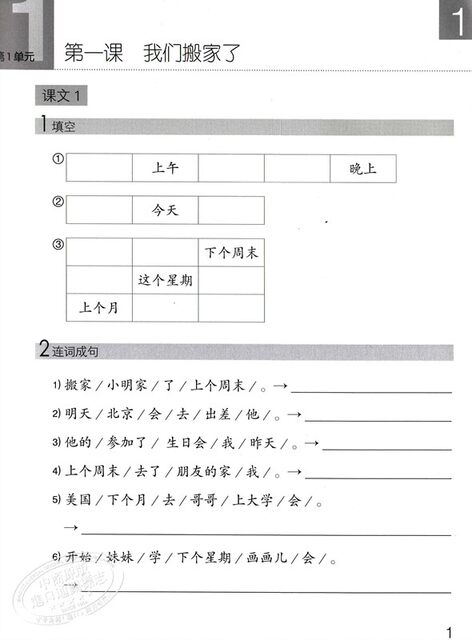 1
第1单元
第一课 我们搬家了
1
课文1
1 填空
① 上午 晚上
② 今天
③ 下个周末
这个星期
上个月
2 连词成句
1) 搬家/小明家/了/上个周末/。→
2) 明天/北京/会/去/出差/他/。→
3) 他的/参加了/生日会/我/昨天/。→
4) 上个周末/去了/朋友的家/我/。→
5) 美国/下个月/去/哥哥/上大学/会/。
→
6) 开始/妹妹/学/下个星期/画画儿/会/。
→
1